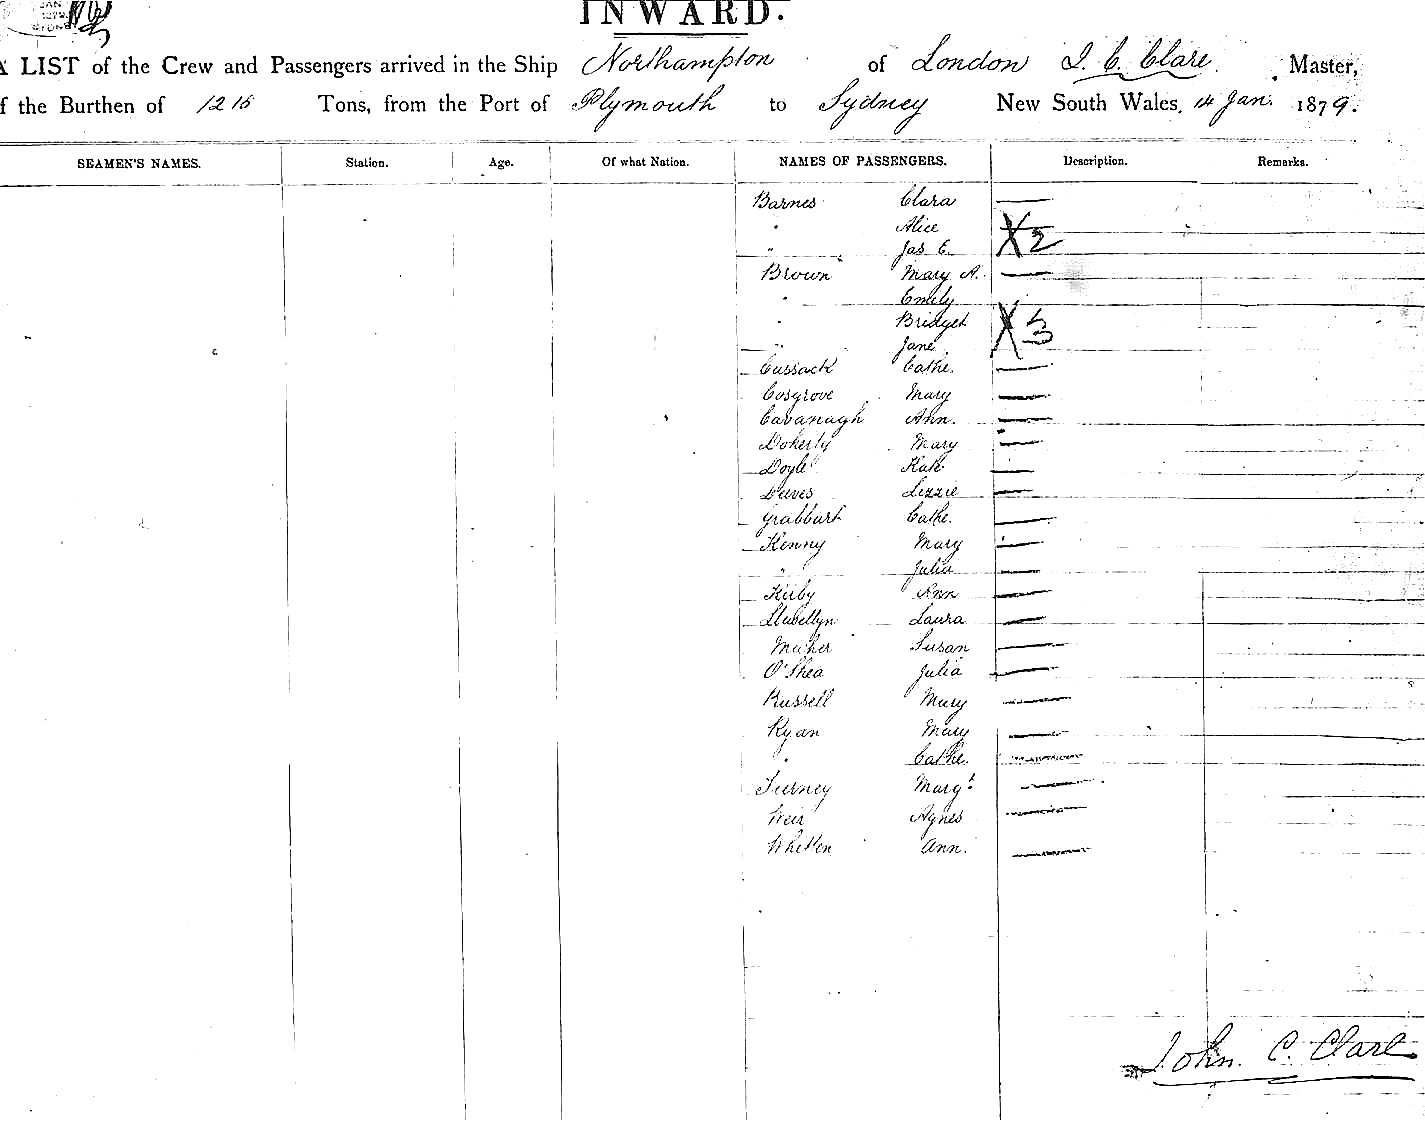 JAN
1879
INWARD.
A LIST of the Crew and Passengers arrived in the Ship Northampton of London J. C. Clare. Master,
of the Burthen of 1215 Tons, from the Port of Plymouth to Sydney New South Wales, 14 Jan. 1879.
SEAMEN'S NAMES. Station. Age. Of what Nation. NAMES OF PASSENGERS. Description. Remarks.
Barnes Clara —
" Alice X 2
" Jas E.
Brown Mary A. —
" Emily
" Bridget X 3
" Jane
Cussack Cathe. —
Cosgrove Mary —
Cavanagh Ann. —
Doherty Mary —
Doyle Kate —
Deeves Lizzie —
Grabburt Cathe. —
Kenny Mary —
" Julia —
Kirby Ann —
Llwellyn Laura —
Maher Susan —
O'Shea Julia —
Russell Mary —
Ryan Mary —
" Cathe. —
Turney Margt —
Weir Agnes —
Whitten Ann. —
John. C. Clare